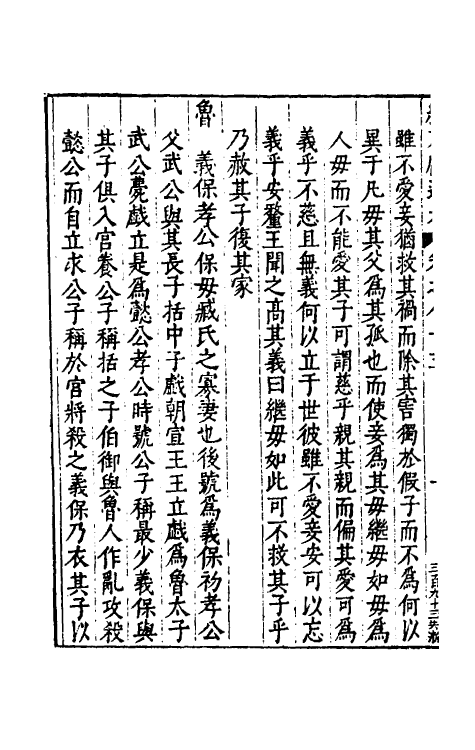 雖不愛妾猶救其禍而除其害獨於假子而不爲何以
異于凡母其父爲其孤也而使妾爲其母繼母如母爲
人母而不能愛其子可謂慈乎親其親而偏其愛可爲
義乎不慈且無義何以立于世彼雖不愛妾安可以忘
義乎安釐王聞之高其義曰繼母如此可不救其子乎
乃赦其子復其家
魯 義保孝公保母臧氏之寡妻也後號爲義保初孝公
父武公與其長子括中子戲朝宣王王立戲爲魯太子
武公薨戲立是爲懿公孝公時號公子稱最少義保與
其子俱入宮養公子稱括之子伯御與魯人作亂攻殺
懿公而自立求公子稱於宮將殺之義保乃衣其子以